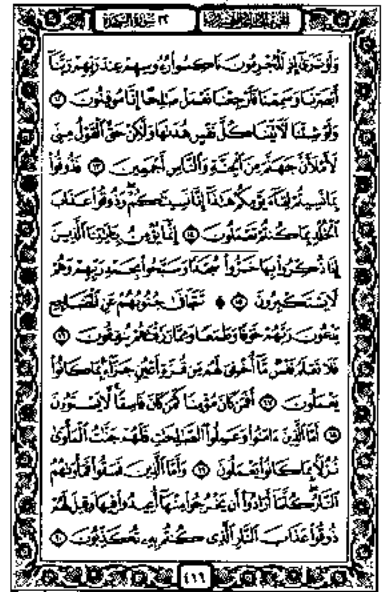 الجزء الحادي والعشرون ٣٢ سورة السجدة
وَلَوْ تَرَىٰٓ إِذِ ٱلْمُجْرِمُونَ نَاكِسُوا۟ رُءُوسِهِمْ عِندَ رَبِّهِمْ رَبَّنَآ
أَبْصَرْنَا وَسَمِعْنَا فَٱرْجِعْنَا نَعْمَلْ صَـٰلِحًا إِنَّا مُوقِنُونَ ۝١٢
وَلَوْ شِئْنَا لَـَٔاتَيْنَا كُلَّ نَفْسٍ هُدَىٰهَا وَلَـٰكِنْ حَقَّ ٱلْقَوْلُ مِنِّى
لَأَمْلَأَنَّ جَهَنَّمَ مِنَ ٱلْجِنَّةِ وَٱلنَّاسِ أَجْمَعِينَ ۝١٣ فَذُوقُوا۟
بِمَا نَسِيتُمْ لِقَآءَ يَوْمِكُمْ هَـٰذَآ إِنَّا نَسِينَـٰكُمْ ۖ وَذُوقُوا۟ عَذَابَ
ٱلْخُلْدِ بِمَا كُنتُمْ تَعْمَلُونَ ۝١٤ إِنَّمَا يُؤْمِنُ بِـَٔايَـٰتِنَا ٱلَّذِينَ
إِذَا ذُكِّرُوا۟ بِهَا خَرُّوا۟ سُجَّدًا وَسَبَّحُوا۟ بِحَمْدِ رَبِّهِمْ وَهُمْ
لَا يَسْتَكْبِرُونَ ۩ ۝١٥ ۞ تَتَجَافَىٰ جُنُوبُهُمْ عَنِ ٱلْمَضَاجِعِ
يَدْعُونَ رَبَّهُمْ خَوْفًا وَطَمَعًا وَمِمَّا رَزَقْنَـٰهُمْ يُنفِقُونَ ۝١٦
فَلَا تَعْلَمُ نَفْسٌ مَّآ أُخْفِىَ لَهُم مِّن قُرَّةِ أَعْيُنٍ جَزَآءًۢ بِمَا كَانُوا۟
يَعْمَلُونَ ۝١٧ أَفَمَن كَانَ مُؤْمِنًا كَمَن كَانَ فَاسِقًا ۚ لَّا يَسْتَوُۥنَ
۝١٨ أَمَّا ٱلَّذِينَ ءَامَنُوا۟ وَعَمِلُوا۟ ٱلصَّـٰلِحَـٰتِ فَلَهُمْ جَنَّـٰتُ ٱلْمَأْوَىٰ
نُزُلًۢا بِمَا كَانُوا۟ يَعْمَلُونَ ۝١٩ وَأَمَّا ٱلَّذِينَ فَسَقُوا۟ فَمَأْوَىٰهُمُ
ٱلنَّارُ ۖ كُلَّمَآ أَرَادُوٓا۟ أَن يَخْرُجُوا۟ مِنْهَآ أُعِيدُوا۟ فِيهَا وَقِيلَ لَهُمْ
ذُوقُوا۟ عَذَابَ ٱلنَّارِ ٱلَّذِى كُنتُم بِهِۦ تُكَذِّبُونَ ۝٢٠
٤١٦